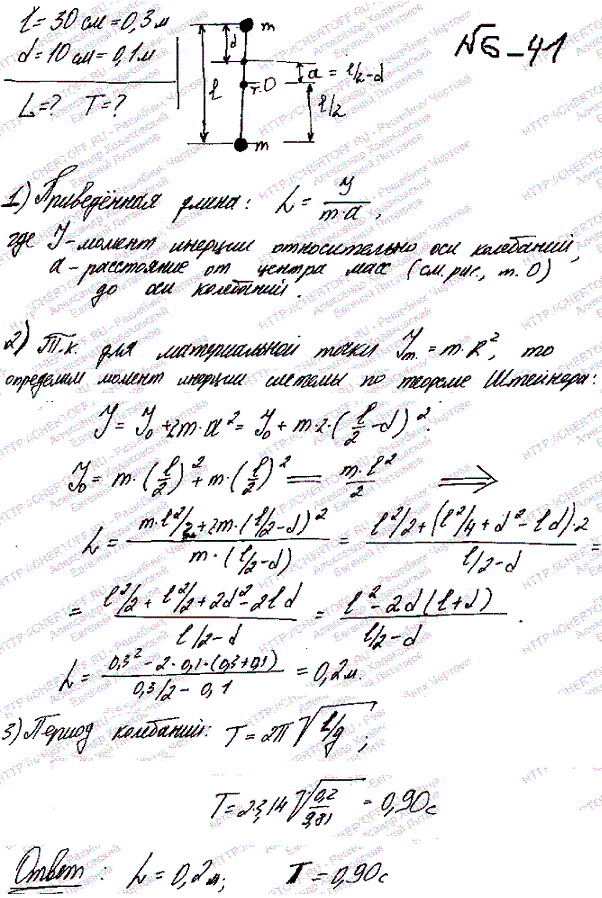 l = 30 см = 0,3 м
d = 10 см = 0,1 м
L = ? T = ?
m
d
a = l/2 - d
т. О
l
l/2
m
№ 6-41
1) Приведённая длина: L = J / (m·a),
где J - момент инерции относительно оси колебаний,
a - расстояние от центра масс (см. рис., т. О)
до оси колебаний.
2) Т.к. для материальной точки Jт. = m·R², то
определим момент инерции системы по теореме Штейнера:
J = J₀ + 2m·a² = J₀ + m·2·(l/2 - d)².
J₀ = m·(l/2)² + m·(l/2)² = m·l²/2 ⟹
L = (m·l²/2 + 2m·(l/2-d)²) / (m·(l/2-d)) = (l²/2 + (l²/4 + d² - ld)·2) / (l/2-d) =
= (l²/2 + l²/2 + 2d² - 2ld) / (l/2-d) = (l² - 2d(l+d)) / (l/2-d)
L = (0,3² - 2·0,1·(0,3+0,1)) / (0,3/2 - 0,1) = 0,2 м.
3) Период колбаний: T = 2π √(l/g);
T = 2·3,14 √(0,2/9,81) = 0,90 с
Ответ: L = 0,2 м; T = 0,90 с
HTTP://CHERTOFF.RU - Решебник Чертова